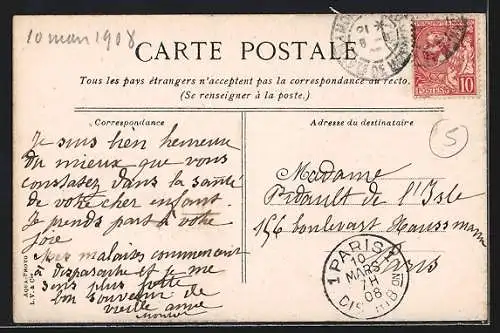 10 mars 1908
CARTE POSTALE
Tous les pays étrangers n'acceptent pas la correspondance au recto.
(Se renseigner à la poste.)
Correspondance
Adresse du destinataire
Je suis bien heureuse
du mieux que vous
constatez dans la santé
de votre cher enfant.
Je prends part à votre
joie
Mes malaises commencent
à disparaitre et je me
sens plus forte
bon souvenir de
vieille amie
Madame
Pidault de l'Isle
156 boulevard Haussmann
Paris
5
10
1 PARIS 1
10
MARS
7H
08
DISTRIB
AQUA-PHOTO
L.V. & Cie